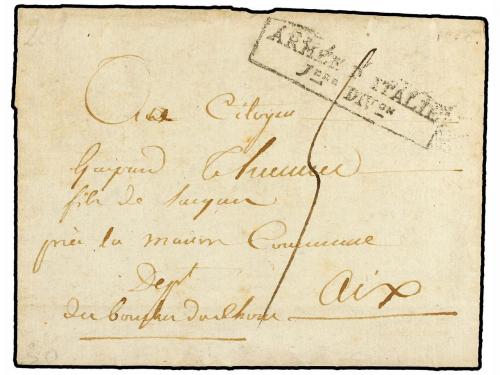 ARMÉE D'ITALIE
1ere DIVon
Au Citoyen
Gaspard
fils de
près la maison Commune
Dept
du bouches du Rhone
aix
5